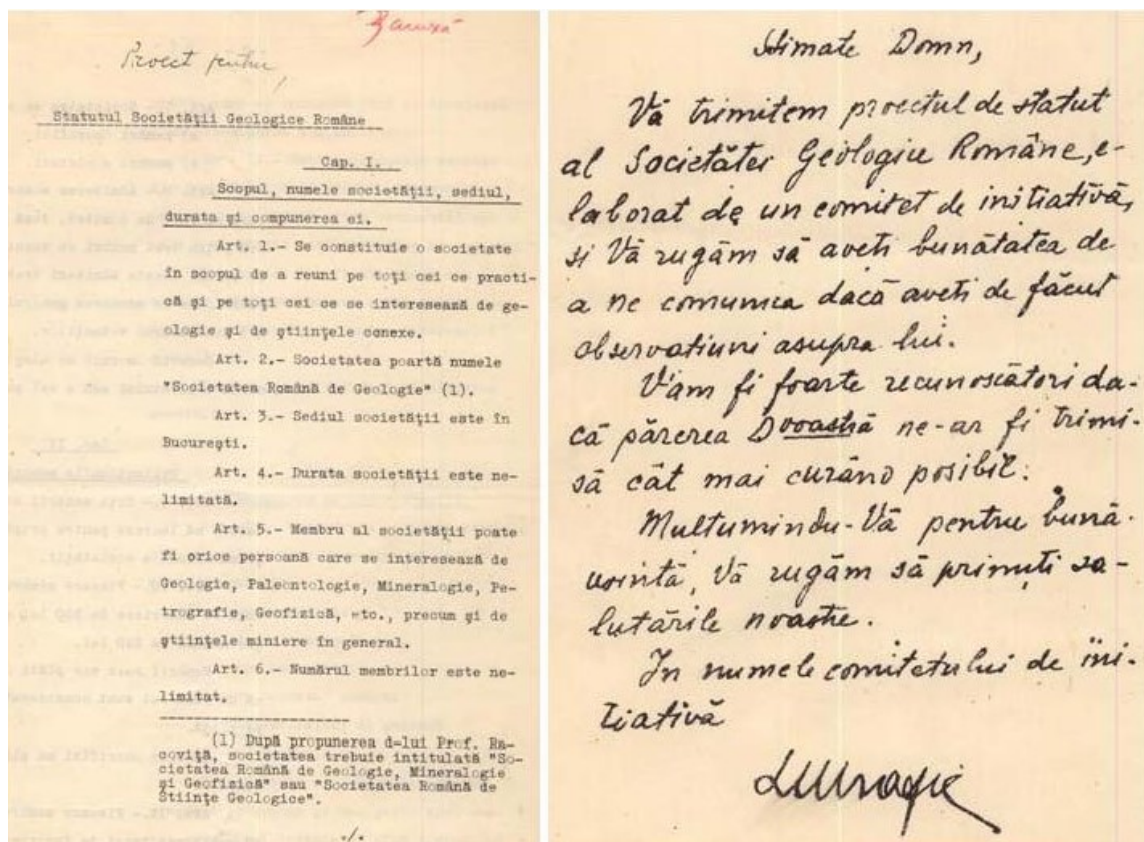 Proect pentru
Statutul Societăţii Geologice Române
Cap. I.
Scopul, numele societăţii, sediul,
durata şi compunerea ei.
Art. 1.- Se constituie o societate
în scopul de a reuni pe toţi cei ce practi-
că şi pe toţi cei ce se interesează de ge-
ologie şi de ştiinţele conexe.
Art. 2.- Societatea poartă numele
"Societatea Română de Geologie" (1).
Art. 3.- Sediul societăţii este în
Bucureşti.
Art. 4.- Durata societăţii este ne-
limitată.
Art. 5.- Membru al societăţii poate
fi orice persoană care se interesează de
Geologie, Paleontologie, Mineralogie, Pe-
trografie, Geofizică, etc., precum şi de
ştiinţele miniere în general.
Art. 6.- Numărul membrilor este ne-
limitat.
(1) După propunerea d=lui Prof. Ra-
coviţă, societatea trebuie intitulată "So-
cietatea Română de Geologie, Mineralogie
şi Geofizică" sau "Societatea Română de
Stiinţe Geologice".
./.
Stimate Domn,
Vă trimitem proectul de statut
al Societăţei Geologice Române, e-
laborat de un comitet de initiativă,
si Vă rugăm să aveti bunătatea de
a ne comunica dacă aveti de făcut
observatiuni asupra lui.
V'am fi foarte recunoscători da-
că părerea Dvoastră ne-ar fi trimi-
să cât mai curând posibil.
Multumindu-Vă pentru bună-
vointă, Vă rugăm să primiţi sa-
lutările noastre.
In numele comitetului de ini-
tiativă